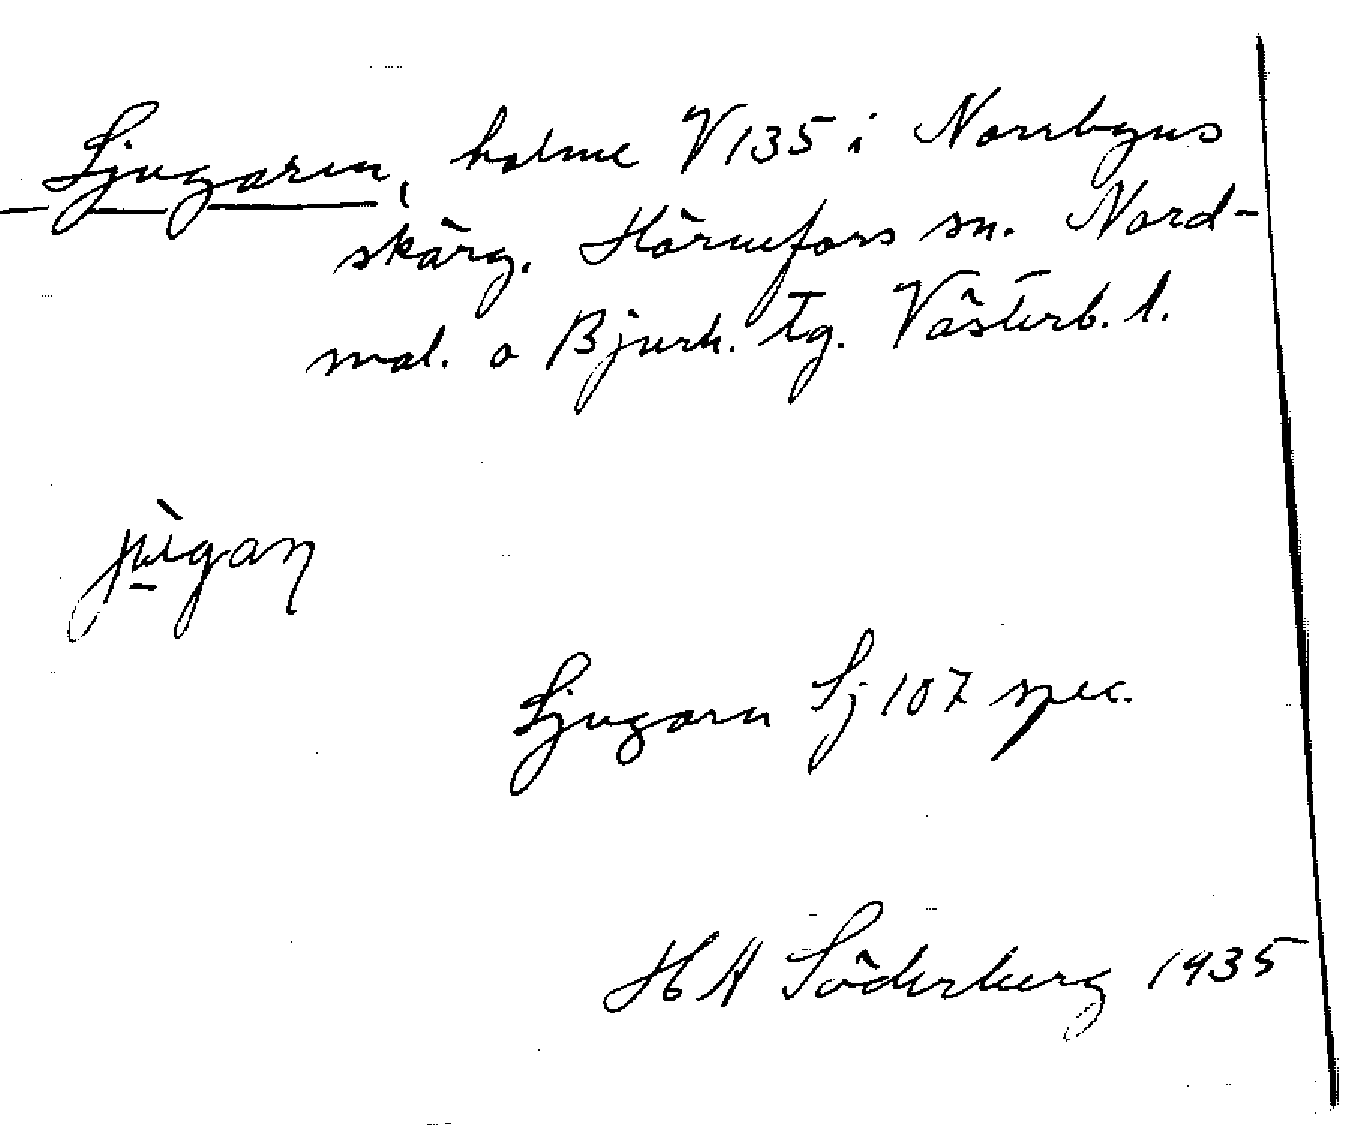 Ljugaren, holme V135 i Norrbyns
skärg. Hörnefors sn. Nord-
mal. o Bjurh. tg. Västerb. l.
Ljugarn Sj 107 spec.
H A Söderberg 1935